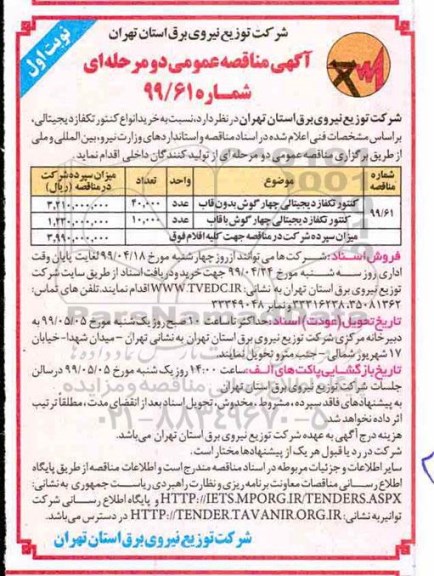 شرکت توزیع نیروی برق استان تهران
نوبت اول
آگهی مناقصه عمومی دو مرحله‌ای
شماره ۹۹/۶۱
شرکت توزیع نیروی برق استان تهران در نظر دارد، نسبت به خرید انواع کنتور تکفاز دیجیتالی،
بر اساس مشخصات فنی اعلام شده در اسناد مناقصه و استانداردهای وزارت نیرو، بین المللی و ملی
از طریق برگزاری مناقصه عمومی دو مرحله ای از تولید کنندگان داخلی اقدام نماید.
شماره مناقصه موضوع واحد تعداد میزان سپرده شرکت در مناقصه (ریال)
۹۹/۶۱ کنتور تکفاز دیجیتالی چهار گوش بدون قاب عدد ۴۰,۰۰۰ ۳,۲۱۰,۰۰۰,۰۰۰
کنتور تکفاز دیجیتالی چهار گوش با قاب عدد ۱۰,۰۰۰ ۱,۲۳۰,۰۰۰,۰۰۰
میزان سپرده شرکت در مناقصه جهت کلیه اقلام فوق ۳,۹۹۰,۰۰۰,۰۰۰
فروش اسناد: شرکت ها می توانند از روز چهار شنبه مورخ ۹۹/۰۴/۱۸ لغایت پایان وقت
اداری روز سه شنبه مورخ ۹۹/۰۴/۲۴ جهت خرید و دریافت اسناد از طریق سایت شرکت
توزیع نیروی برق استان تهران به نشانی: WWW.TVEDC.IR اقدام نمایند. تلفن های تماس:
۳۵۰۸۱۳۶۲، ۳۳۳۱۶۲۳۸ نمابر ۳۳۳۴۹۰۴۸
تاریخ تحویل (عودت) اسناد: حداکثر تا ساعت ۱۰ صبح روز یک شنبه مورخ ۹۹/۰۵/۰۵ به
دبیرخانه مرکزی شرکت توزیع نیروی برق استان تهران به نشانی تهران - میدان شهدا- خیابان
۱۷ شهریور شمالی - جنب مترو تحویل نمایند.
تاریخ بازگشایی پاکت های الف: ساعت ۱۴:۰۰ روز یک شنبه مورخ ۹۹/۰۵/۰۵ در سالن
جلسات شرکت توزیع نیروی برق استان تهران
به پیشنهادهای فاقد سپرده، مشروط، مخدوش، تحویل اسناد بعد از انقضای مدت، مطلقاً ترتیب
اثر داده نخواهد شد.
هزینه درج آگهی به عهده شرکت توزیع نیروی برق استان تهران می‌باشد.
شرکت در رد یا قبول هر یک از پیشنهادها مختار است.
سایر اطلاعات و جزئیات مربوطه در اسناد مناقصه مندرج است و اطلاعات مناقصه از طریق پایگاه
اطلاع رسانی مناقصات معاونت برنامه ریزی و نظارت راهبردی ریاست جمهوری به نشانی:
HTTP://IETS.MPORG.IR/TENDERS.ASPX و پایگاه اطلاع رسانی شرکت
توانیر به نشانی: HTTP://TENDER.TAVANIR.ORG.IR در دسترس می باشد.
شرکت توزیع نیروی برق استان تهران
۰۲۱-۸۸۳۴۹۶۷۰-۵